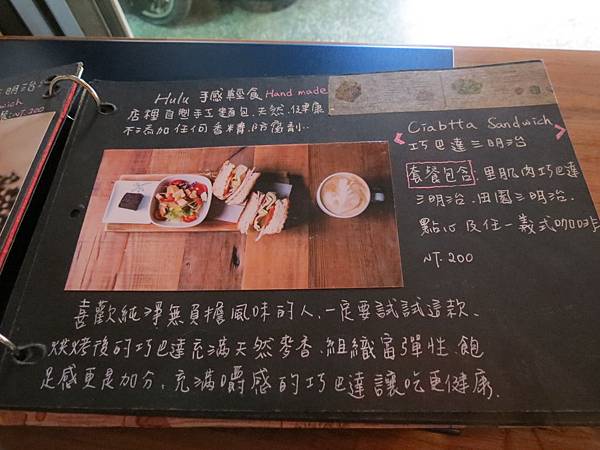 Hulu 手感輕食 Hand made
店裡自製手工麵包.天然.健康
不添加任何香精.防腐劑..
Ciabtta Sandwich
巧巴達三明治
套餐包含:里肌肉巧巴達
三明治.田園三明治.
點心及任一義式咖啡
NT.200
喜歡純淨無負擔風味的人.一定要試試這款.
烘烤後的巧巴達充滿天然麥香.組織富彈性.飽
足感更是加分.充滿嚼感的巧巴達讓吃更健康.
明治
wich
NT.200